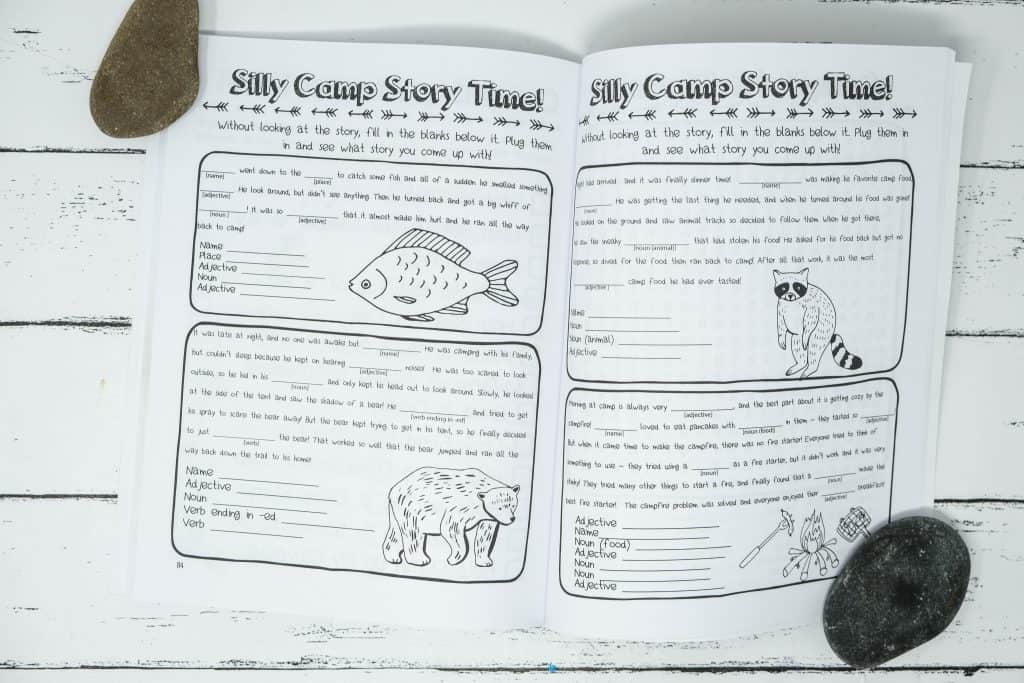 Silly Camp Story Time!
Without looking at the story, fill in the blanks below it. Plug them
in and see what story you come up with!
________ went down to the ________ to catch some fish and all of a sudden he smelled something
(name) (place)
________. He look around, but didn't see anything. Then he turned back and got a big whiff of
(adjective)
________! It was so ________ that it almost made him hurl and he ran all the way
(noun) (adjective)
back to camp!
Name ________
Place ________
Adjective ________
Noun ________
Adjective ________
It was late at night, and no one was awake but ________. He was camping with his family,
(name)
but couldn't sleep because he kept on hearing ________ noises! He was too scared to look
(adjective)
outside, so he hid in his ________ and only kept his head out to look around. Slowly, he looked
(noun)
at the side of the tent and saw the shadow of a bear! He ________ and tried to get
(verb ending in -ed)
his spray to scare the bear away! But the bear kept trying to get in his tent, so he finally decided
to just ________ the bear! That worked so well that the bear jumped and ran all the
(verb)
way back down the trail to his home!
Name ________
Adjective ________
Noun ________
Verb ending in -ed ________
Verb ________
84
Silly Camp Story Time!
Without looking at the story, fill in the blanks below it. Plug them in
and see what story you come up with!
had arrived and it was finally dinner time! ________ was making his favorite camp food,
(name)
________. He was getting the last thing he needed, and when he turned around his food was gone!
(noun)
looked on the ground and saw animal tracks so decided to follow them. When he got there,
saw the sneaky ________ that had stolen his food! He asked for his food back but got no
(noun (animal))
so dived for the food then ran back to camp! After all that work, it was the most
________ camp food he had ever tasted!
(adjective)
Name ________
Noun ________
Noun (animal) ________
Adjective ________
Morning at camp is always very ________, and the best part about it is getting cozy by the
(adjective)
campfire! ________ loved to eat pancakes with ________ in them – they tasted so ________.
(name) (noun (food)) (adjective)
But when it came time to make the campfire, there was no fire starter! Everyone tried to think of
something to use – they tried using a ________ as a fire starter, but it didn't work and it was very
(noun)
They tried many other things to start a fire, and finally found that a ________ made the
(noun)
best fire starter! The campfire problem was solved and everyone enjoyed their ________ breakfast!
(adjective)
Adjective ________
Name ________
Noun (food) ________
Adjective ________
Noun ________
Noun ________
Adjective ________